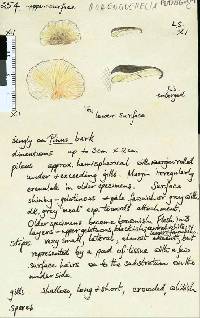 254 upper surface
HOHENBUEHELIA
L.S.
x1
x1
L.S.
enlarged
lower surface
Singly on Pinus bark
dimensions up to 3cm x 2cm
pileus approx. hemispherical with margin rolled
under & exceeding gills. Margin irregularly
crenulate in older specimens. Surface
shiny - gelatinous & pale fawnish or grey with
dk. grey 'meal' esp. towards attachment.
Older specimens become brownish. Flesh in 3
layers - upper gelatinous, blackish
Stipe very small, lateral, almost absent, but
represented by a pad of tissue with a few
surface hairs on to the substratum on the
underside.
gills shallow, long & short, crowded, whitish
spores